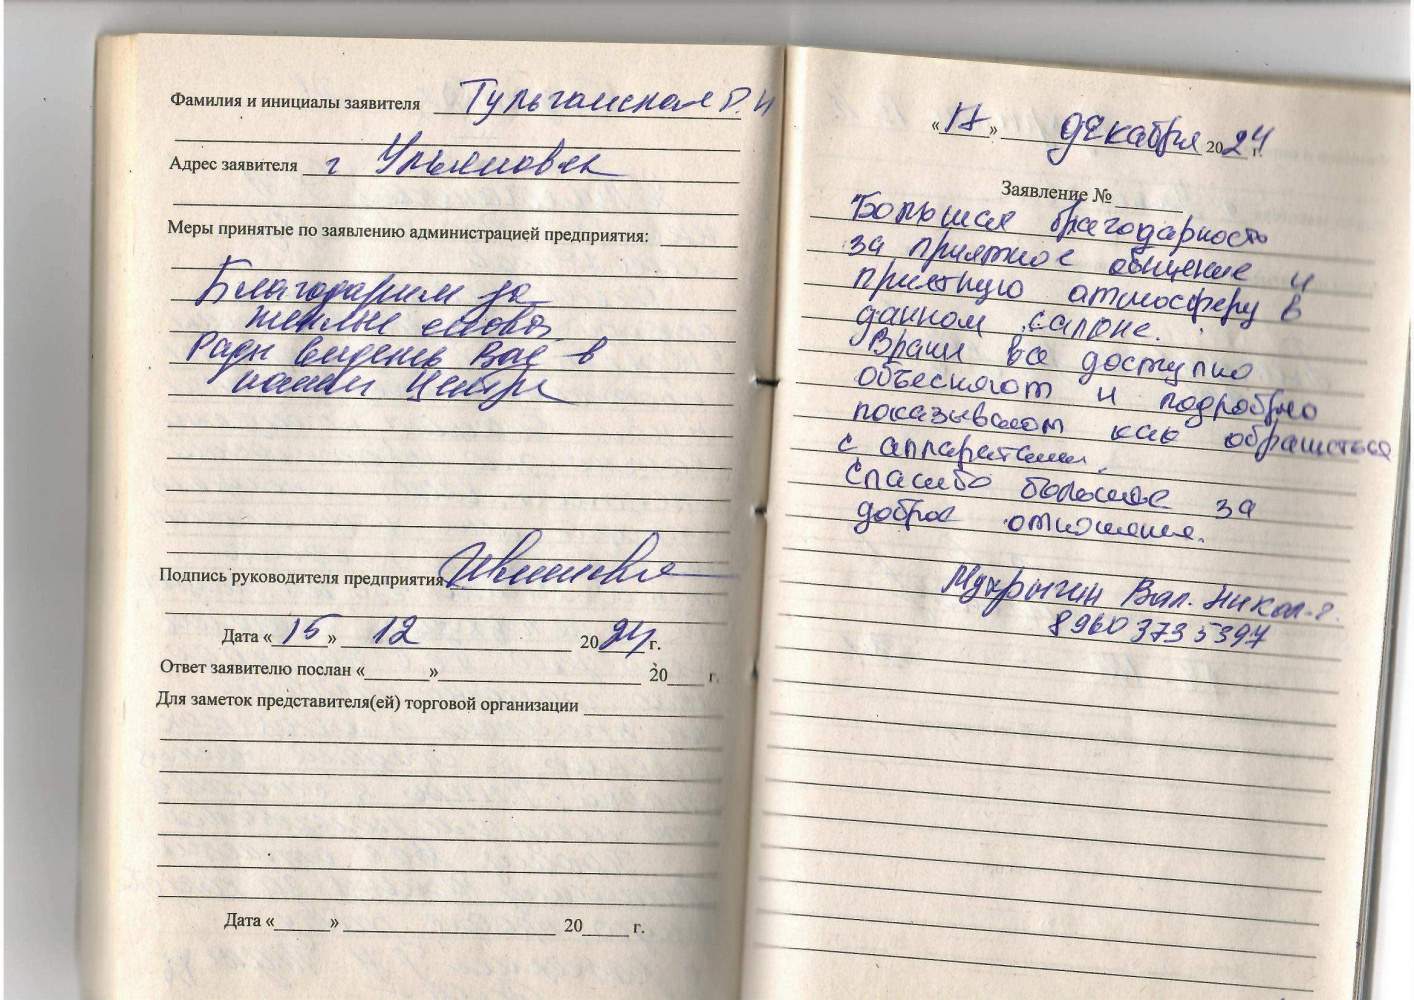 Фамилия и инициалы заявителя Тульганская Р. Н
Адрес заявителя г Ульяновск
Меры принятые по заявлению администрацией предприятия:
Благодарим за
теплые слова
Рады видеть Вас в
нашем Центре
Подпись руководителя предприятия
Дата « 15 » 12 2024 г.
Ответ заявителю послан « » 20 г.
Для заметок представителя(ей) торговой организации
Дата « » 20 г.
« 17 » декабря 2024 г.
Заявление №
Большая благодарность
за приятное общение и
приятную атмосферу в
данном салоне.
Врачи все доступно
объесняют и подробно
показывают как обращаться
с аппаратами.
Спасибо большое за
доброе отношение.
Мухрыгин Вал. Никол-.
89603735397